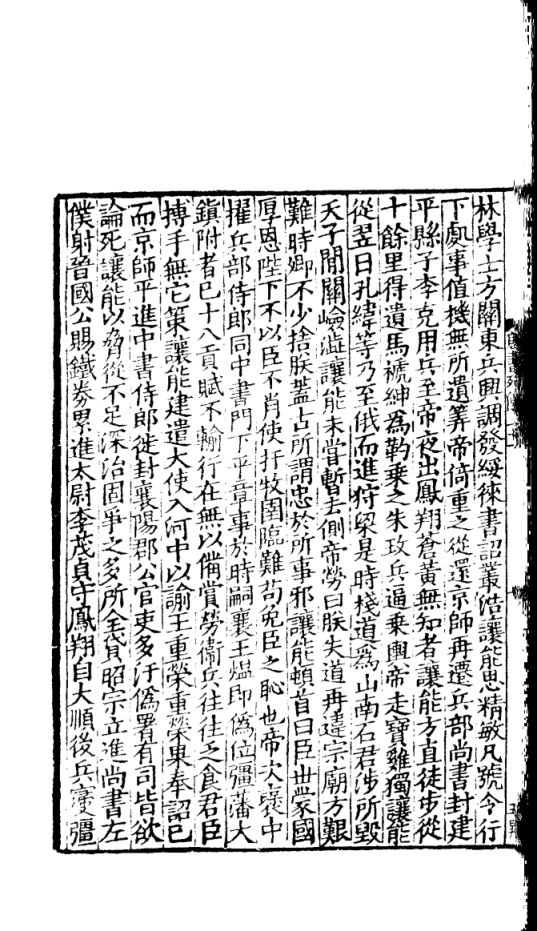 林學士方關東兵興調發綏徠書詔叢浩讓能思精敏凡號令行
下處事值機無所遺筭帝倚重之從還京師再遷兵部尚書封建
平縣子李克用兵至帝夜出鳳翔蒼黃無知者讓能方直徒步從
十餘里得遺馬褫紳爲靮乗之朱玫兵逼乗輿帝走寶雞獨讓能
從翌日孔緯等乃至俄而進狩梁是時棧道爲山南石君涉所毀
天子間關嶮澁讓能未嘗暫去側帝勞曰朕失道再違宗廟方艱
難時卿不少捨朕蓋古所謂忠於所事邪讓能頓首曰臣世蒙國
厚恩陛下不以臣不肖使扞牧圉臨難苟免臣之恥也帝次褒中
擢兵部侍郎同中書門下平章事於時嗣襄王熅即僞位彊藩大
鎮附者巳十八貢賦不輸行在無以僃賞勞衞兵往往乏食君臣
摶手無它策讓能建遣大使入河中以諭王重榮重榮果奉詔巳
而京師平進中書侍郎徙封襄陽郡公官吏多汙僞署有司皆欲
論死讓能以脅從不足深治固爭之多所全貰昭宗立進尚書左
僕射晉國公賜鐵券累進太尉李茂貞守鳳翔自大順後兵寖彊